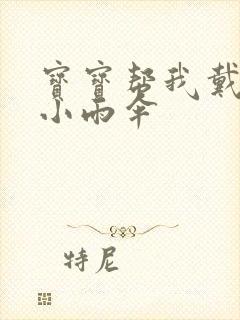 寶寶幫我戴
小雨傘
特尼